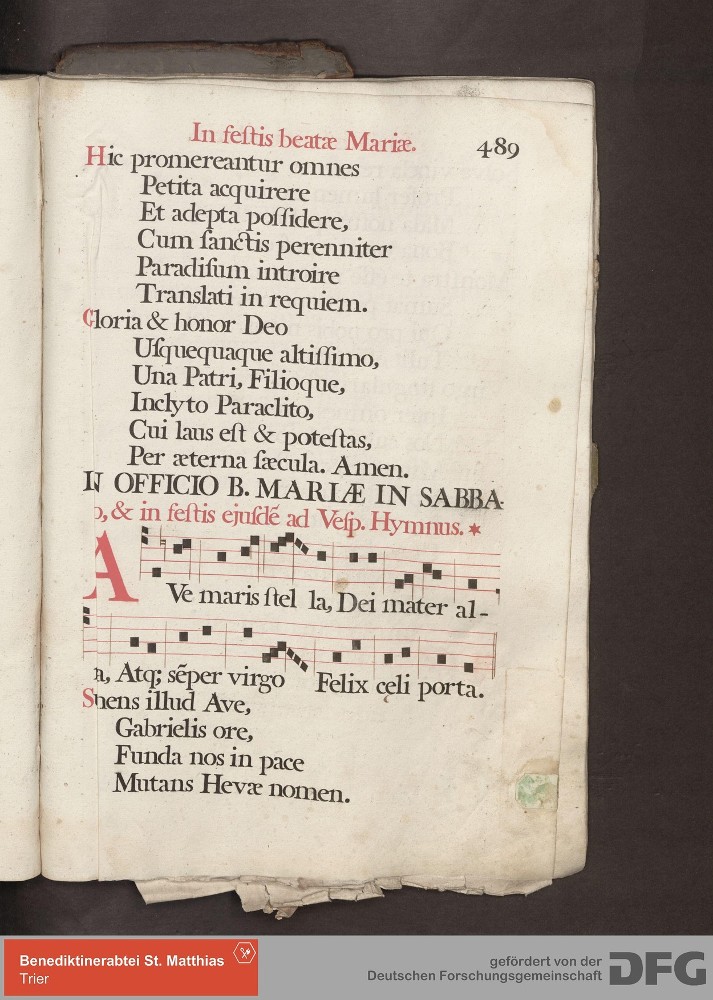 In feſtis beatæ Mariæ. 489
Hic promereantur omnes
Petita acquirere
Et adepta poſſidere,
Cum ſanctis perenniter
Paradiſum introire
Tranſlati in requiem.
Gloria & honor Deo
Uſquequaque altiſſimo,
Una Patri, Filioque,
Inclyto Paraclito,
Cui laus eſt & poteſtas,
Per æterna ſæcula. Amen.
IN OFFICIO B. MARIÆ IN SABBA-
o, & in feſtis ejuſdē ad Veſp. Hymnus. *
AVe maris ſtel la, Dei mater al-
a, Atq; sēper virgo Felix cęli porta.
Sumens illud Ave,
Gabrielis ore,
Funda nos in pace
Mutans Hevæ nomen.
Benediktinerabtei St. Matthias
Trier
gefördert von der
Deutschen Forschungsgemeinschaft
DFG